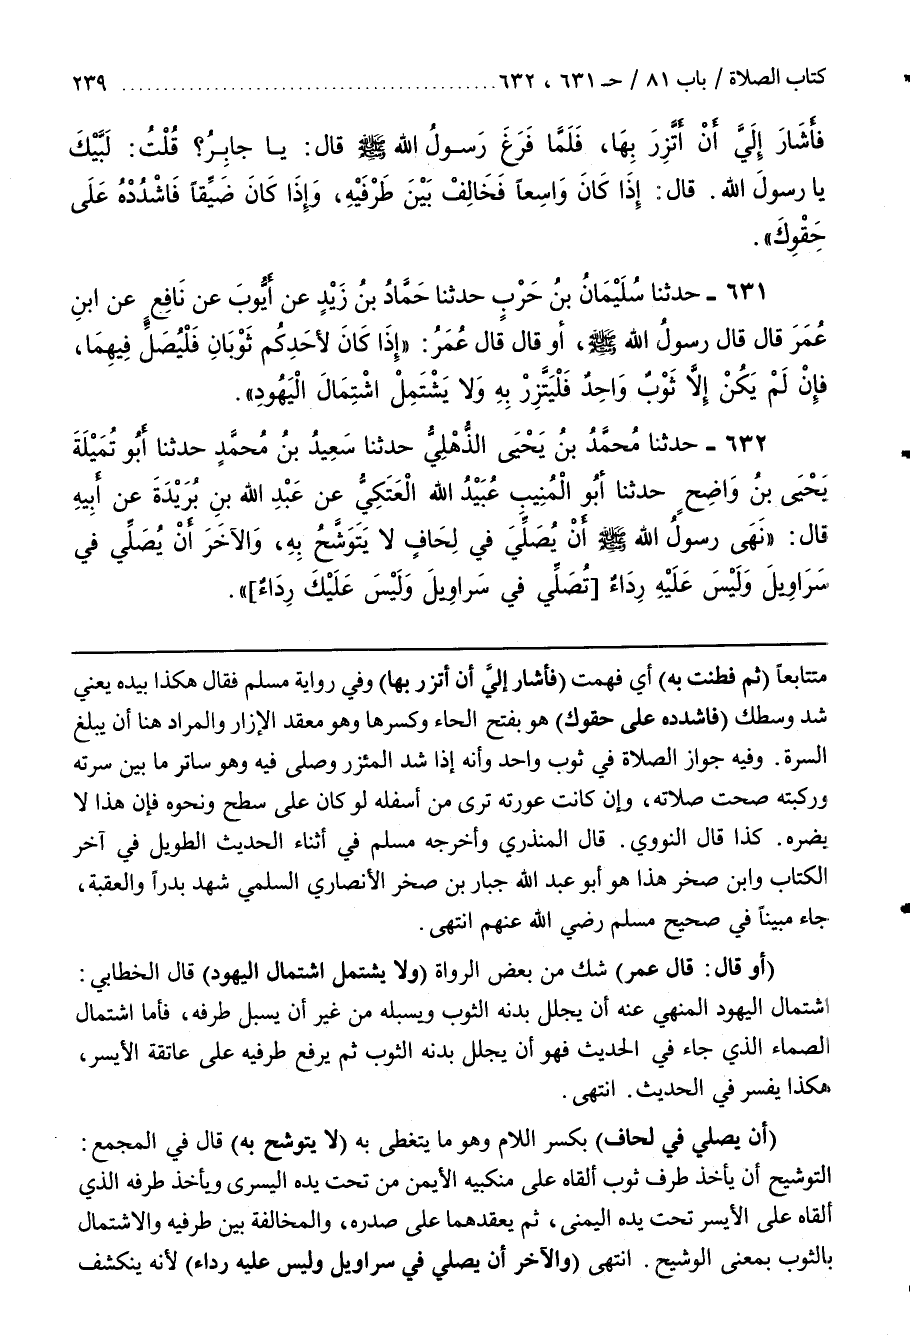 كتاب الصلاة / باب ٨١ / حـ ٦٣١ ، ٦٣٢ ............................................. ٢٣٩
فأَشَارَ إِلَيَّ أَنْ أَتَّزِرَ بِهَا، فَلَمَّا فَرَغَ رَسولُ الله ﷺ قال: يا جابِرُ؟ قُلْتُ: لَبَّيْكَ
يا رسولَ الله. قال: إِذَا كَانَ وَاسِعاً فَخَالِفْ بَيْنَ طَرْفَيْهِ، وَإِذَا كَانَ ضَيِّقاً فَاشْدُدْهُ عَلَى
حَِقْوِكَ».
٦٣١ ـ حدثنا سُلَيْمَانُ بنُ حَرْبٍ حدثنا حَمَّادُ بنُ زَيْدٍ عن أَيُّوبَ عن نَافِعٍ عن ابنِ
عُمَرَ قال قال رسولُ الله ﷺ، أو قال قال عُمَرُ: «إِذَا كَانَ لأحَدِكُم ثَوْبَانِ فَلْيُصَلِّ فِيهِمَا،
فإِنْ لَمْ يَكُنْ إِلَّا ثَوْبٌ وَاحِدٌ فَلْيَتَّزِرْ بِهِ وَلا يَشْتَمِلْ اشْتِمَالَ الْيَهُودِ».
٦٣٢ ـ حدثنا مُحمَّدُ بنُ يَحْيَى الذُّهْلِيُّ حدثنا سَعِيدُ بنُ مُحمَّدٍ حدثنا أَبُو تُمَيْلَةَ
يَحْيَى بنُ وَاضِحٍ حدثنا أبُو الْمُنِيبِ عُبَيْدُ الله الْعَتَكِيُّ عن عَبْدِ الله بنِ بُرَيْدَةَ عن أبِيهِ
قال: «نَهَى رسولُ الله ﷺ أَنْ يُصَلِّيَ في لِحَافٍ لا يَتَوَشَّحُ بِهِ، وَالآخَرَ أَنْ يُصَلِّي في
سَرَاوِيلَ وَلَيْسَ عَلَيْهِ رِدَاءٌ [تُصَلِّي في سَراوِيلَ وَلَيْسَ عَلَيْكَ رِدَاءٌ]».
متتابعاً (ثم فطنت به) أي فهمت (فأشار إليَّ أن أتزر بها) وفي رواية مسلم فقال هكذا بيده يعني
شد وسطك (فاشدده على حقوك) هو بفتح الحاء وكسرها وهو معقد الإزار والمراد هنا أن يبلغ
السرة. وفيه جواز الصلاة في ثوب واحد وأنه إذا شد المئزر وصلى فيه وهو ساتر ما بين سرته
وركبته صحت صلاته، وإن كانت عورته ترى من أسفله لو كان على سطح ونحوه فإن هذا لا
يضره. كذا قال النووي. قال المنذري وأخرجه مسلم في أثناء الحديث الطويل في آخر
الكتاب وابن صخر هذا هو أبو عبد الله جبار بن صخر الأنصاري السلمي شهد بدراً والعقبة،
جاء مبيناً في صحيح مسلم رضي الله عنهم انتهى.
(أو قال: قال عمر) شك من بعض الرواة (ولا يشتمل اشتمال اليهود) قال الخطابي:
اشتمال اليهود المنهي عنه أن يجلل بدنه الثوب ويسبله من غير أن يسبل طرفه، فأما اشتمال
الصماء الذي جاء في الحديث فهو أن يجلل بدنه الثوب ثم يرفع طرفيه على عاتقة الأيسر،
هكذا يفسر في الحديث. انتهى.
(أن يصلي في لحاف) بكسر اللام وهو ما يتغطى به (لا يتوشح به) قال في المجمع:
التوشيح أن يأخذ طرف ثوب ألقاه على منكبيه الأيمن من تحت يده اليسرى ويأخذ طرفه الذي
ألقاه على الأيسر تحت يده اليمنى، ثم يعقدهما على صدره، والمخالفة بين طرفيه والاشتمال
بالثوب بمعنى الوشيح. انتهى (والآخر أن يصلي في سراويل وليس عليه رداء) لأنه ينكشف